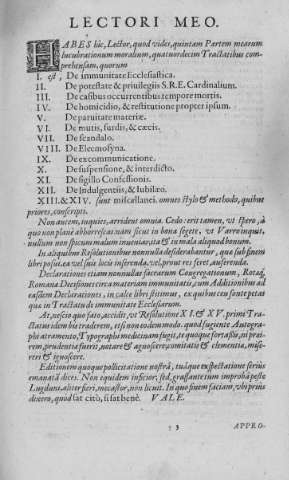 LECTORI MEO.
HABES hîc, Lector, quod vides, quintam Partem mearum
lucubrationum moralium, quatuordecim Tractatibus com-
prehensam, quorum
I. est, De immunitate Ecclesiastica.
II. De potestate & privilegiis S.R.E. Cardinalium.
III. De casibus occurrentibus tempore mortis.
IV. De homicidio, & restitutione propter ipsum.
V. De parvitate materiæ.
VI. De mutis, surdis, & cæcis.
VII. De scandalo.
VIII. De Eleemosyna.
IX. De excommunicatione.
X. De suspensione, & interdicto.
XI. De sigillo Confessionis.
XII. De Indulgentiis, & Iubilæo.
XIII. & XIV. sunt miscellanei. omnes stylo & methodo, quibus
priores, conscripti.
Non autem, inquies, arrident omnia. Cedo: erit tamen, vt spero, à
quo non planè abhorrescas: nam sicut in bona segete, vt Varro inquit,
nullum non spicum malum invenias, ita & in mala aliquod bonum.
In aliquibus Resolutionibus nonnulla desiderabantur, quæ sub finem
libri posui, ea vel suis locis inserenda, vel, prout res feret, auferenda.
Declarationes etiam nonnullas sacrarum Congregationum, Rotæq́;
Romanæ Decisiones circa materiam immunitatis, cum Additionibus ad
easdem Declarationes, in calce libri sistimus, ex quibus ceu fonte petas
quæ in Tractatu de immunitate Ecclesiarum.
At, nescio quo fato, accidit, vt Resolutione XI. & XV. primi Tra-
ctatus idem bis traderem, etsi non eodem modo. quod fugiente Autogra-
phi atramento, Typographi medicinam fugit. at quoque fortassis, ni pror-
rem, prudentia fuerit, notare & agnoscere; comitatis & clementia, mise-
reri & ignoscere.
Editionem quoque pollicitatione nostrâ, tuâque expectatione seriùs
emanatâ dices. Non equidem inficior, sed, grassante tum improbâ peste
Lugduni, aliter fieri, me castor, non licuit. In quo fuvem factam, vbi prius
dixero, quod sat citò, si sat benè. VALE.
† 3
APPRO-